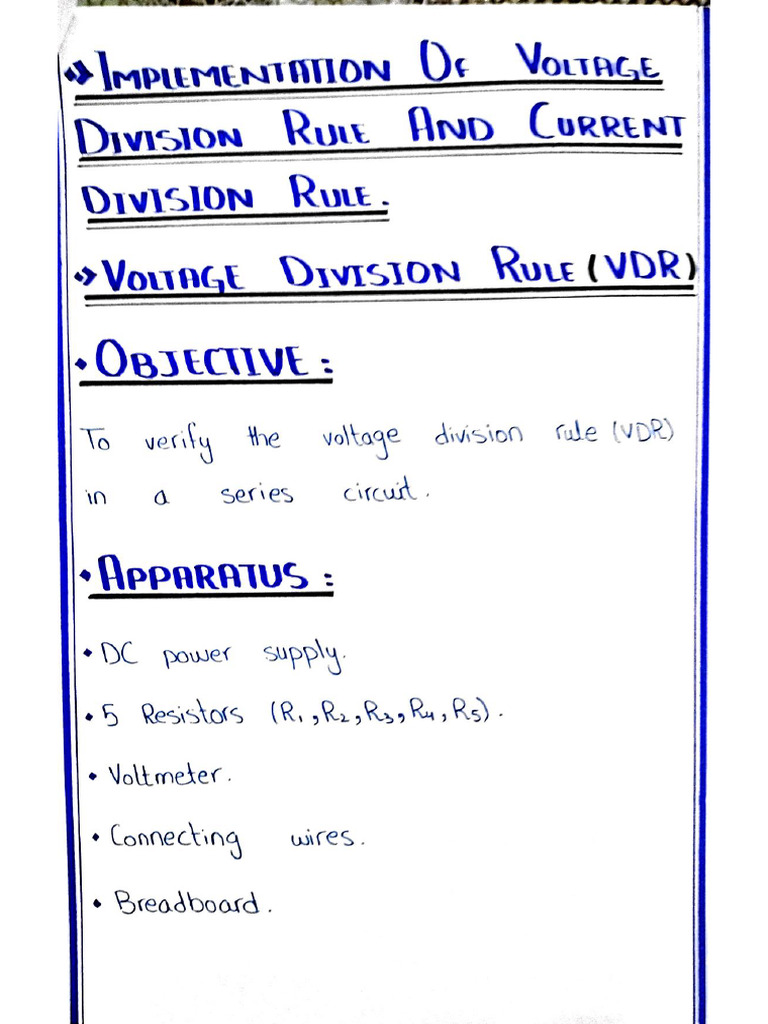 ➺ IMPLEMENTATION OF VOLTAGE
DIVISION RULE AND CURRENT
DIVISION RULE.
➺ VOLTAGE DIVISION RULE (VDR)
• OBJECTIVE :
To verify the voltage division rule (VDR)
in a series circuit.
• APPARATUS :
• DC power supply.
• 5 Resistors (R₁, R₂, R₃, R₄, R₅).
• Voltmeter.
• Connecting wires.
• Breadboard.